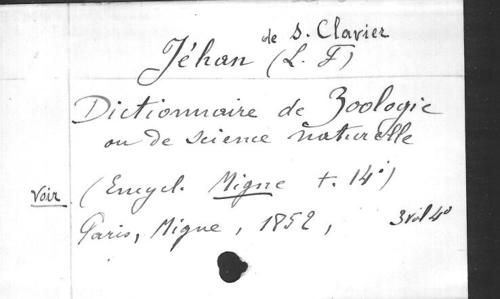 de S. Clavier
Jéhan (L. F)
Dictionnaire de Zoologie
ou de science naturelle
voir (Encycl. Migne t. 14)
Paris, Migne, 1852, 3 vol 4º